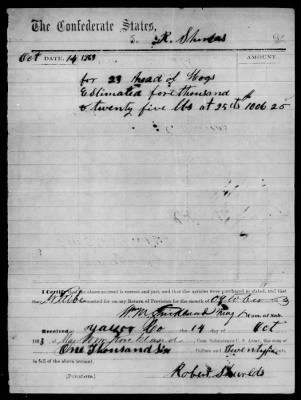 The Confederate States,
To R. Shurlds
DATE. AMOUNT.
Oct 14 1863
for 23 head of Hogs
Estimated five thousand
& twenty five lbs at 25 cts 1006 25
I Certify that the above account is correct and just, and that the articles were purchased as stated, and that
accounted for on my Return of Provisions for the month of October 3
W. M. Strickland Maj Com. of Sub.
Received Yazoo Co 14 Oct
1863 Maj W M Strickland Com. Subsistence C. S. Army, the sum of
One Thousand Six Dollars and Twenty five
in full of the above account.
Robert Shurlds